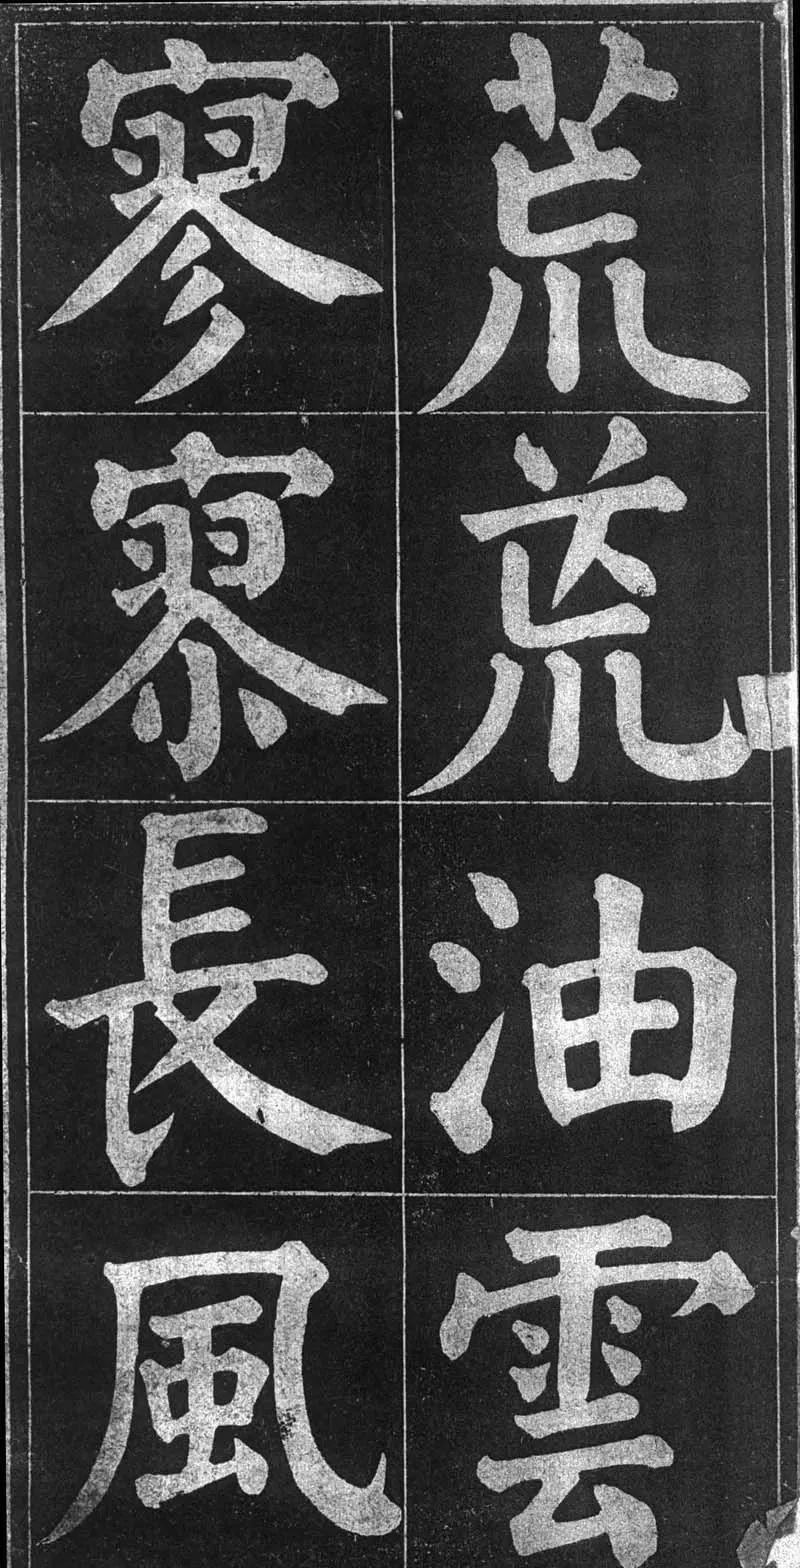 荒荒油雲
寥寥長風